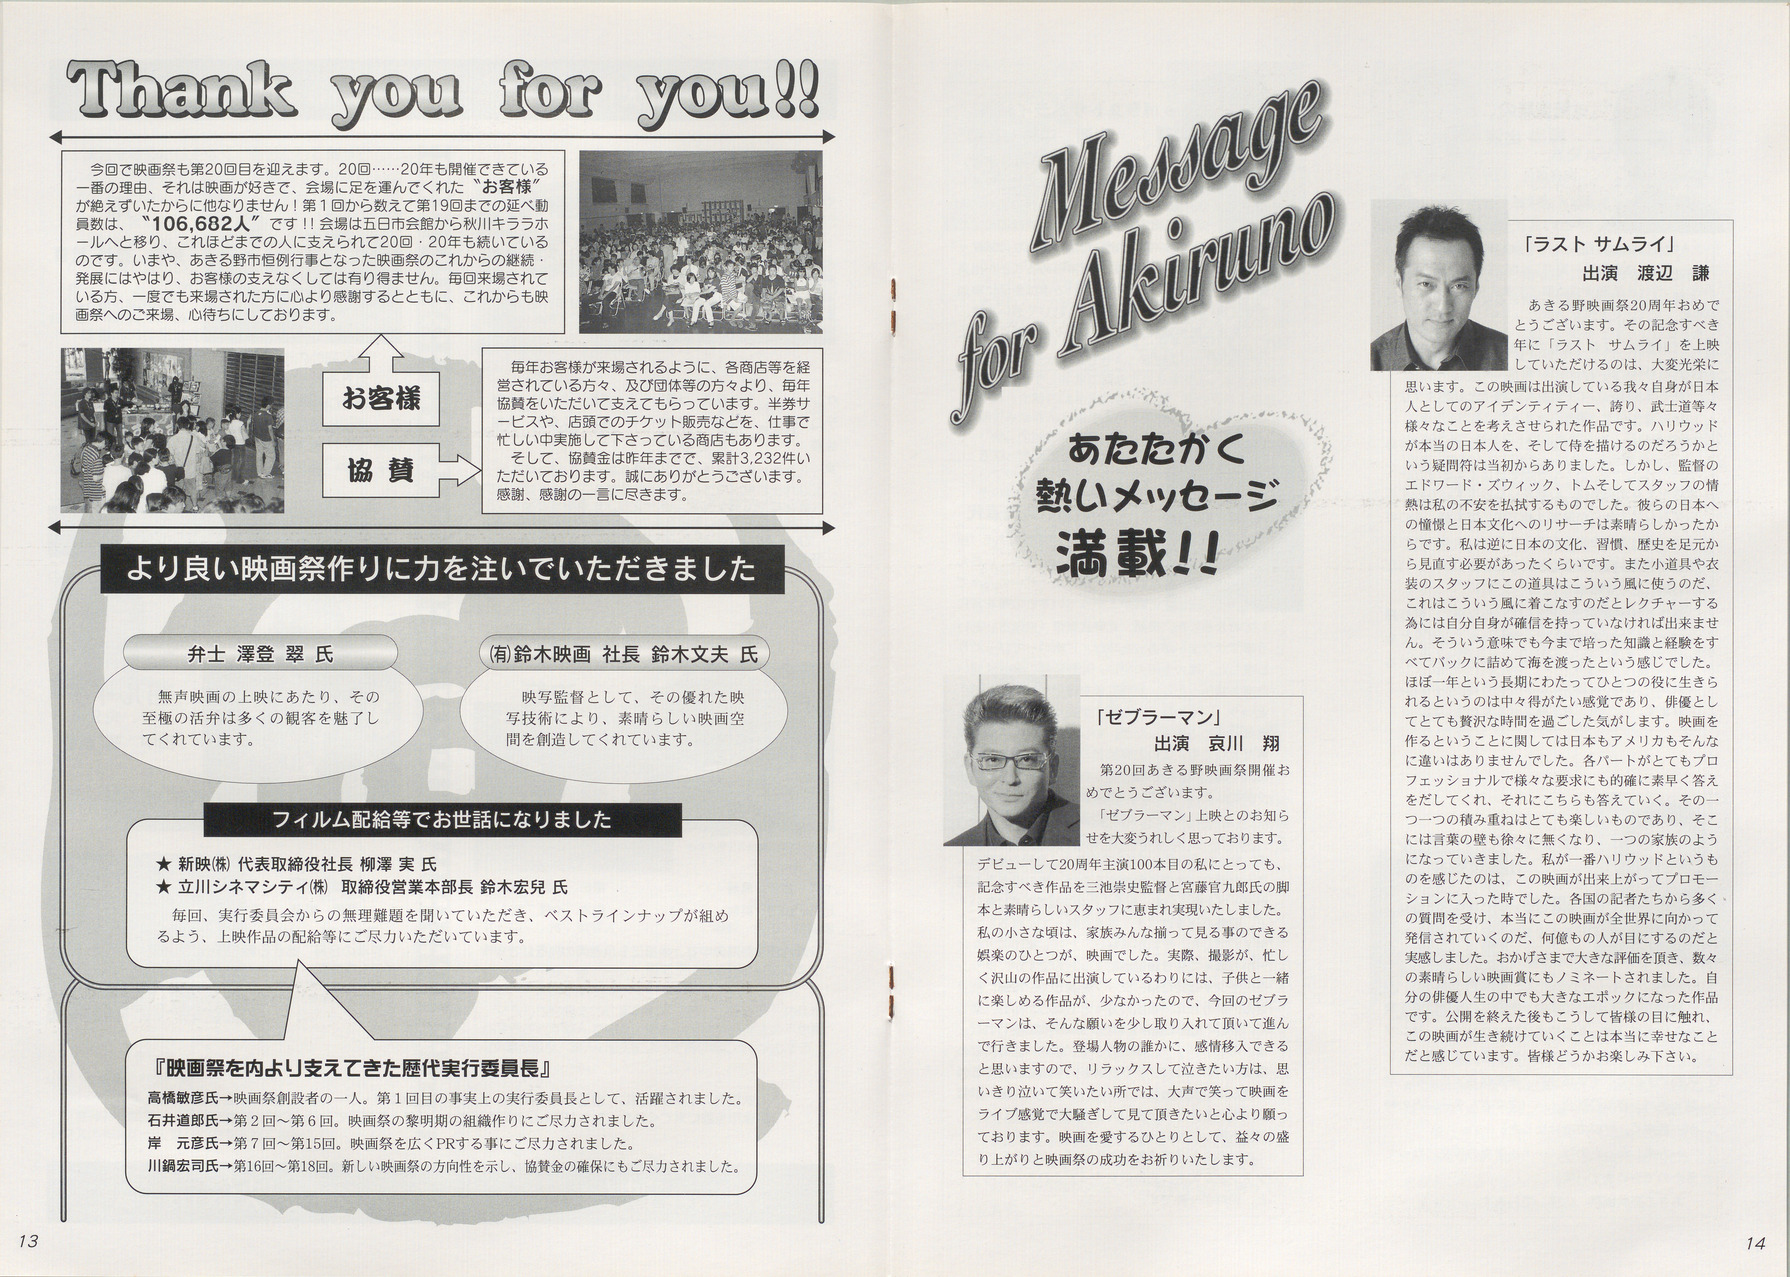 Thank you for you!!
今回で映画祭も第20回目を迎えます。20回……20年も開催できている
一番の理由、それは映画が好きで、会場に足を運んでくれた〝お客様〟
が絶えずいたからに他なりません！第１回から数えて第19回までの延べ動
員数は、〝106,682人〟です!!会場は五日市会館から秋川キララホ
ールへと移り、これほどまでの人に支えられて20回・20年も続いている
のです。いまや、あきる野市恒例行事となった映画祭のこれからの継続・
発展にはやはり、お客様の支えなくしては有り得ません。毎回来場されて
いる方、一度でも来場された方に心より感謝するとともに、これからも映
画祭へのご来場、心待ちにしております。
お客様
協賛
毎年お客様が来場されるように、各商店等を経
営されている方々、及び団体等の方々より、毎年
協賛をいただいて支えてもらっています。半券サ
ービスや、店頭でのチケット販売などを、仕事で
忙しい中実施して下さっている商店もあります。
そして、協賛金は昨年までで、累計3,232件い
ただいております。誠にありがとうございます。
感謝、感謝の一言に尽きます。
より良い映画祭作りに力を注いでいただきました
弁士 澤登 翠 氏
無声映画の上映にあたり、その
至極の活弁は多くの観客を魅了し
てくれています。
㈲鈴木映画 社長 鈴木文夫 氏
映写監督として、その優れた映
写技術により、素晴らしい映画空
間を創造してくれています。
フィルム配給等でお世話になりました
★ 新映㈱ 代表取締役社長 柳澤 実 氏
★ 立川シネマシティ㈱ 取締役営業本部長 鈴木宏兒 氏
毎回、実行委員会からの無理難題を聞いていただき、ベストラインナップが組め
るよう、上映作品の配給等にご尽力いただいています。
『映画祭を内より支えてきた歴代実行委員長』
高橋敏彦氏→映画祭創設者の一人。第１回目の事実上の実行委員長として、活躍されました。
石井道郎氏→第２回～第６回。映画祭の黎明期の組織作りにご尽力されました。
岸　元彦氏→第７回～第15回。映画祭を広くPRする事にご尽力されました。
川鍋宏司氏→第16回～第18回。新しい映画祭の方向性を示し、協賛金の確保にもご尽力されました。
13
Message
for Akiruno
あたたかく
熱いメッセージ
満載!!
「ゼブラーマン」
出演　哀川　翔
第20回あきる野映画祭開催お
めでとうございます。
「ゼブラーマン」上映とのお知ら
せを大変うれしく思っております。
デビューして20周年主演100本目の私にとっても、
記念すべき作品を三池崇史監督と宮藤官九郎氏の脚
本と素晴らしいスタッフに恵まれ実現いたしました。
私の小さな頃は、家族みんな揃って見る事のできる
娯楽のひとつが、映画でした。実際、撮影が、忙し
く沢山の作品に出演しているわりには、子供と一緒
に楽しめる作品が、少なかったので、今回のゼブラ
ーマンは、そんな願いを少し取り入れて頂いて進ん
で行きました。登場人物の誰かに、感情移入できる
と思いますので、リラックスして泣きたい方は、思
いきり泣いて笑いたい所では、大声で笑って映画を
ライブ感覚で大騒ぎして見て頂きたいと心より願っ
ております。映画を愛するひとりとして、益々の盛
り上がりと映画祭の成功をお祈りいたします。
「ラスト サムライ」
出演　渡辺　謙
あきる野映画祭20周年おめで
とうございます。その記念すべき
年に「ラスト　サムライ」を上映
していただけるのは、大変光栄に
思います。この映画は出演している我々自身が日本
人としてのアイデンティティー、誇り、武士道等々
様々なことを考えさせられた作品です。ハリウッド
が本当の日本人を、そして侍を描けるのだろうかと
いう疑問符は当初からありました。しかし、監督の
エドワード・ズウィック、トムそしてスタッフの情
熱は私の不安を払拭するものでした。彼らの日本へ
の憧憬と日本文化へのリサーチは素晴らしかったか
らです。私は逆に日本の文化、習慣、歴史を足元か
ら見直す必要があったくらいです。また小道具や衣
装のスタッフにこの道具はこういう風に使うのだ、
これはこういう風に着こなすのだとレクチャーする
為には自分自身が確信を持っていなければ出来ませ
ん。そういう意味でも今まで培った知識と経験をす
べてバックに詰めて海を渡ったという感じでした。
ほぼ一年という長期にわたってひとつの役に生きら
れるというのは中々得がたい感覚であり、俳優とし
てとても贅沢な時間を過ごした気がします。映画を
作るということに関しては日本もアメリカもそんな
に違いはありませんでした。各パートがとてもプロ
フェッショナルで様々な要求にも的確に素早く答え
をだしてくれ、それにこちらも答えていく。その一
つ一つの積み重ねはとても楽しいものであり、そこ
には言葉の壁も徐々に無くなり、一つの家族のよう
になっていきました。私が一番ハリウッドというも
のを感じたのは、この映画が出来上がってプロモー
ションに入った時でした。各国の記者たちから多く
の質問を受け、本当にこの映画が全世界に向かって
発信されていくのだ、何億もの人が目にするのだと
実感しました。おかげさまで大きな評価を頂き、数々
の素晴らしい映画賞にもノミネートされました。自
分の俳優人生の中でも大きなエポックになった作品
です。公開を終えた後もこうして皆様の目に触れ、
この映画が生き続けていくことは本当に幸せなこと
だと感じています。皆様どうかお楽しみ下さい。
14